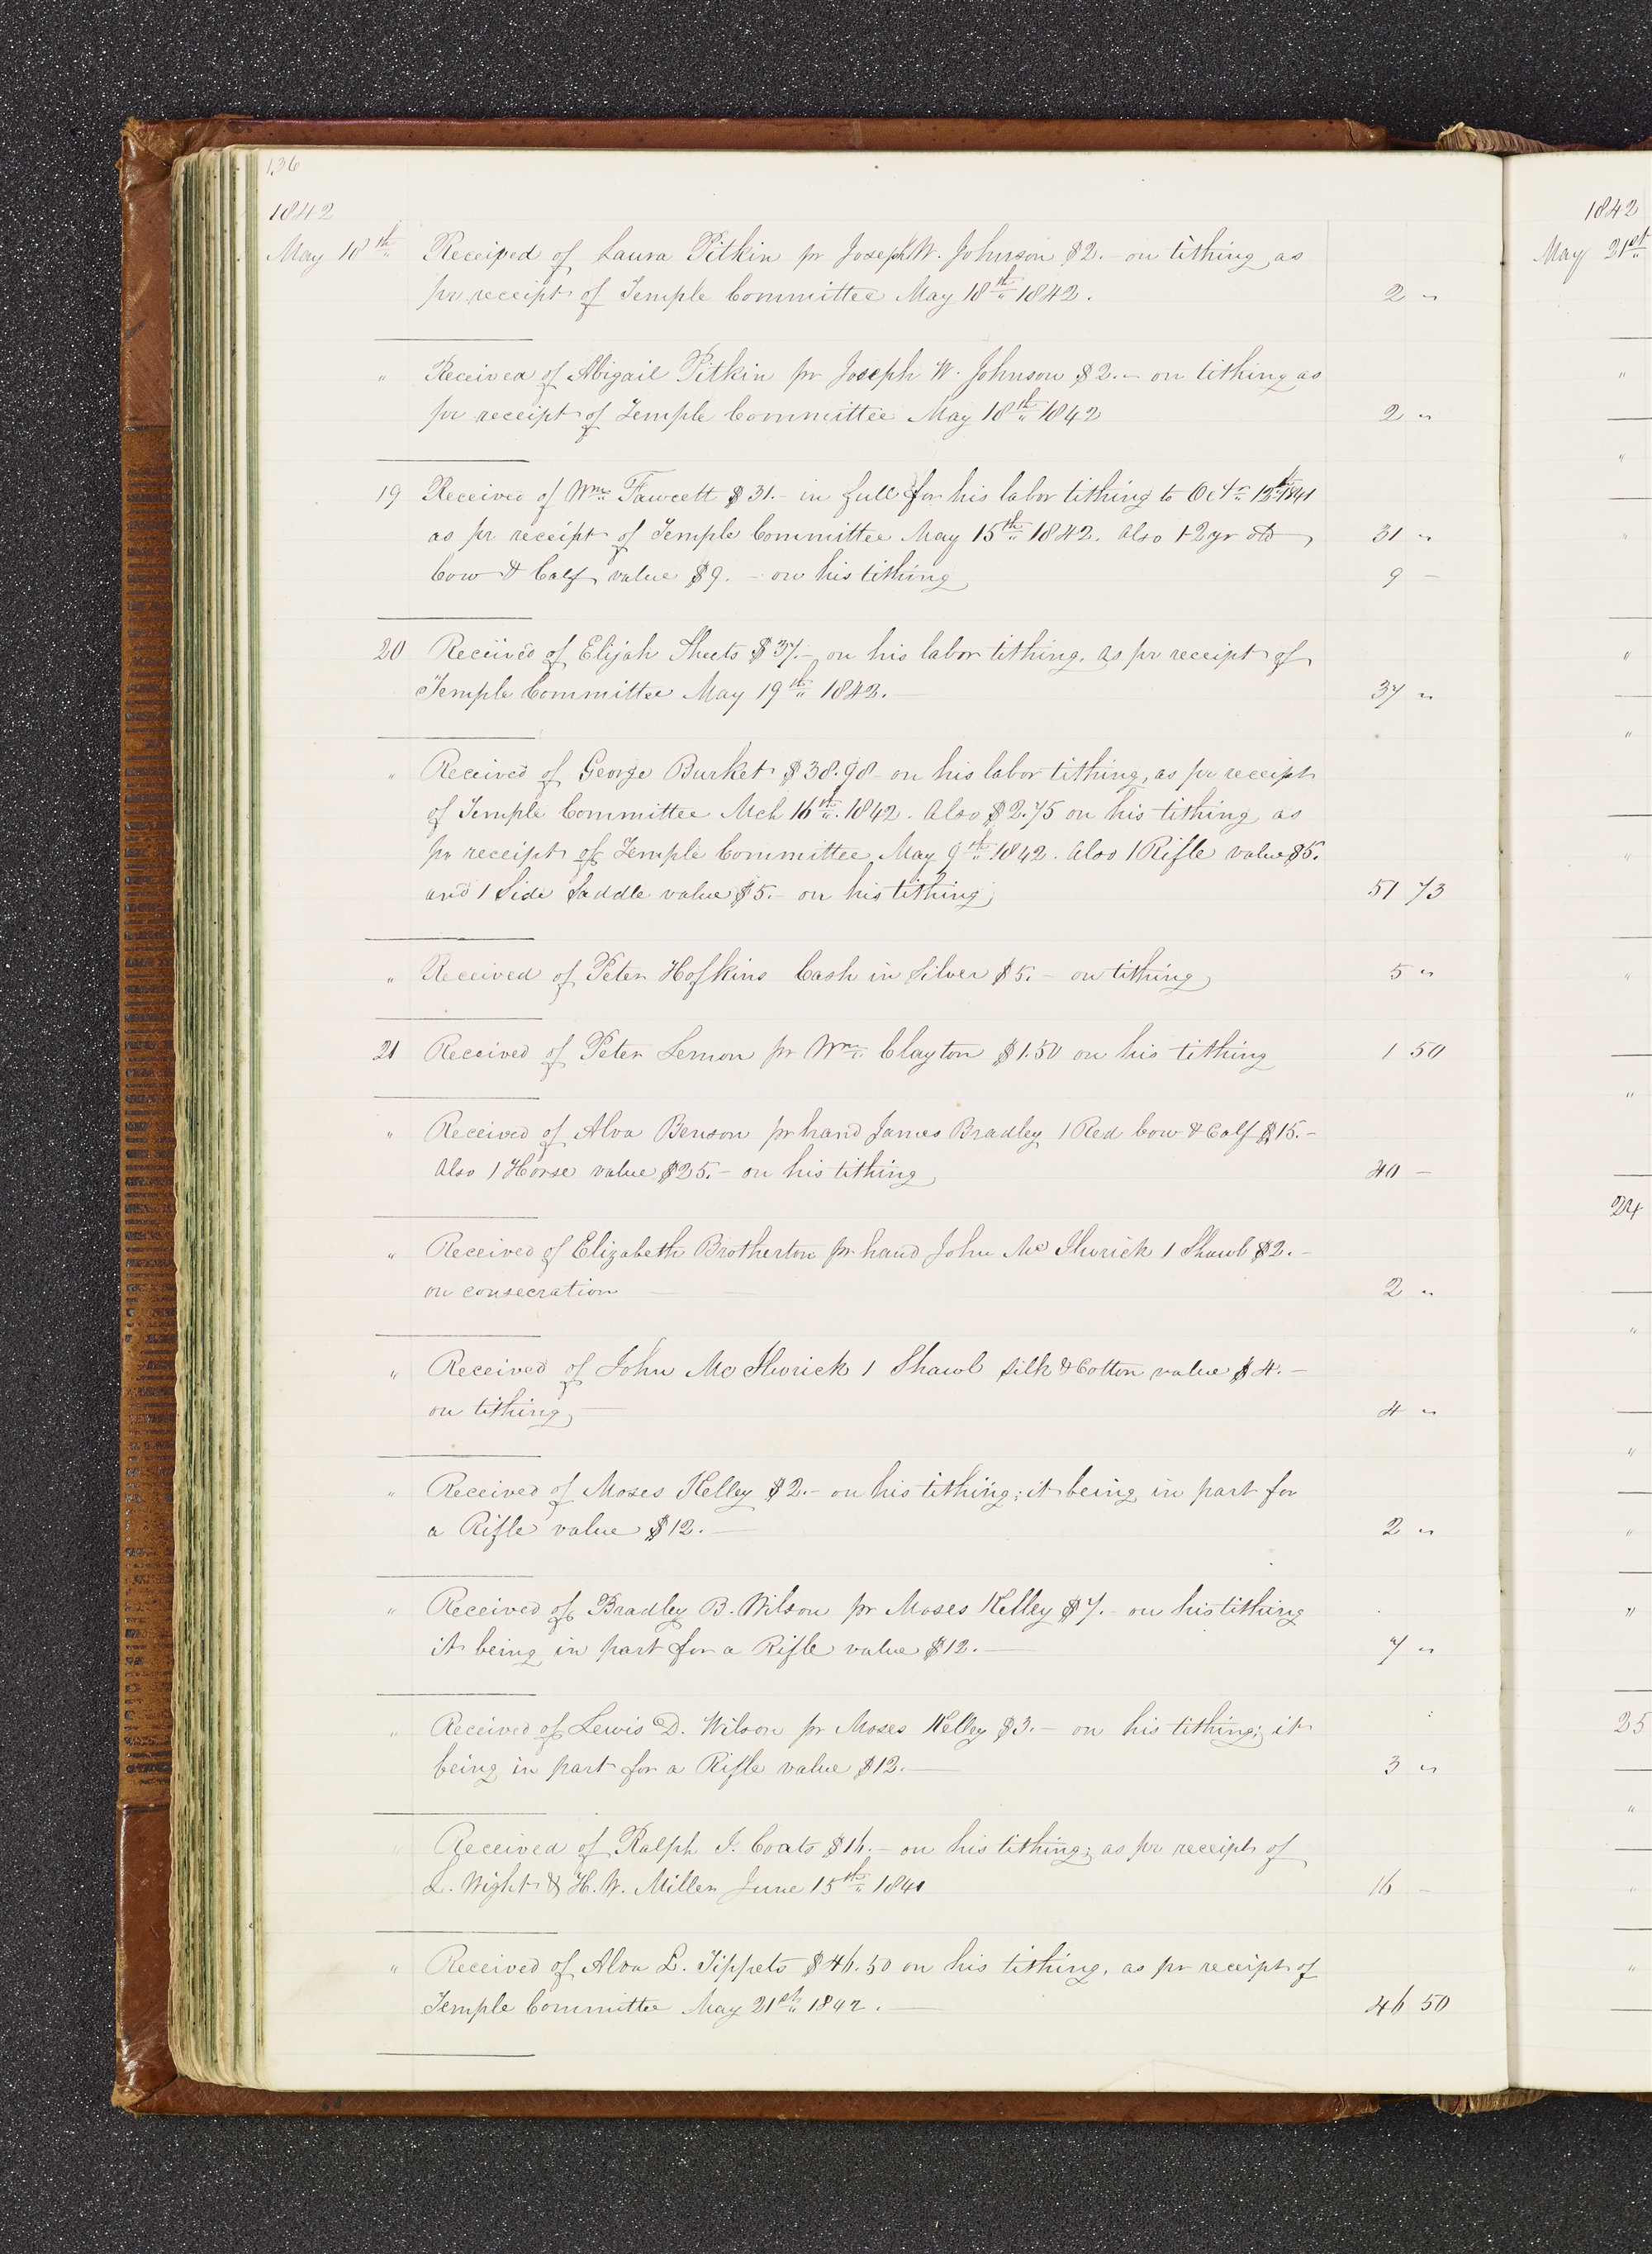 136
1842
May 18th Received of Laura Pitkin pr Joseph W. Johnson $2.– on tithing as
pr receipt of Temple Committee May 18th 1842. 2 "
" Received of Abigail Pitkin pr Joseph W. Johnson $2.– on tithing as
pr receipt of Temple Committee May 18th 1842 2 "
19 Received of Wm. Fawcett $31.– in full for his labor tithing to Oct. 1841
as pr receipt of Temple Committee May 15th 1842. Also 1 2 yr old 31 "
Cow & Calf value $9. – on his tithing 9 –
20 Received of Elijah Sheets $37.– on his labor tithing, as pr receipt of
Temple Committee May 19th 1842. – 37 "
" Received of George Burket $38.98 on his labor tithing, as pr receipt
of Temple Committee Mch 16th 1842. Also $2.75 on his tithing as
pr receipt of Temple Committee May 9th 1842. Also 1 Rifle value $5.
and 1 Side Saddle value $5.– on his tithing 51 73
" Received of Peter Hofkins Cash in Silver $5.– on tithing 5 "
21 Received of Peter Lemon pr Wm. Clayton $1.50 on his tithing 1 50
" Received of Alva Benson pr hand James Bradley 1 Red Cow & Calf $15.–
Also 1 Horse value $25.– on his tithing 40 –
" Received of Elizabeth Brotherton pr hand John Mc Ilwrick 1 Shawl $2.–
on consecration 2 "
" Received of John Mc Ilwrick 1 Shawl Silk & Cotton value $4.–
on tithing – 4 "
" Received of Moses Kelley $2.– on his tithing; it being in part for
a Rifle value $12.– 2 "
" Received of Bradley B. Wilson pr Moses Kelley $7.– on his tithing
it being in part for a Rifle value $12.– 7 "
" Received of Lewis D. Wilson pr Moses Kelley $3.– on his tithing; it
being in part for a Rifle value $12.– 3 "
" Received of Ralph I. Coats $16.– on his tithing; as pr receipt of
L. Wight & H. W. Miller June 15th 1841 16 –
" Received of Alva L. Tippets $46.50 on his tithing, as pr receipt of
Temple Committee May 21st 1842. – 46 50
1842
May 21st
"
"
"
"
"
"
"
"
24
"
"
"
"
25
"
"
"